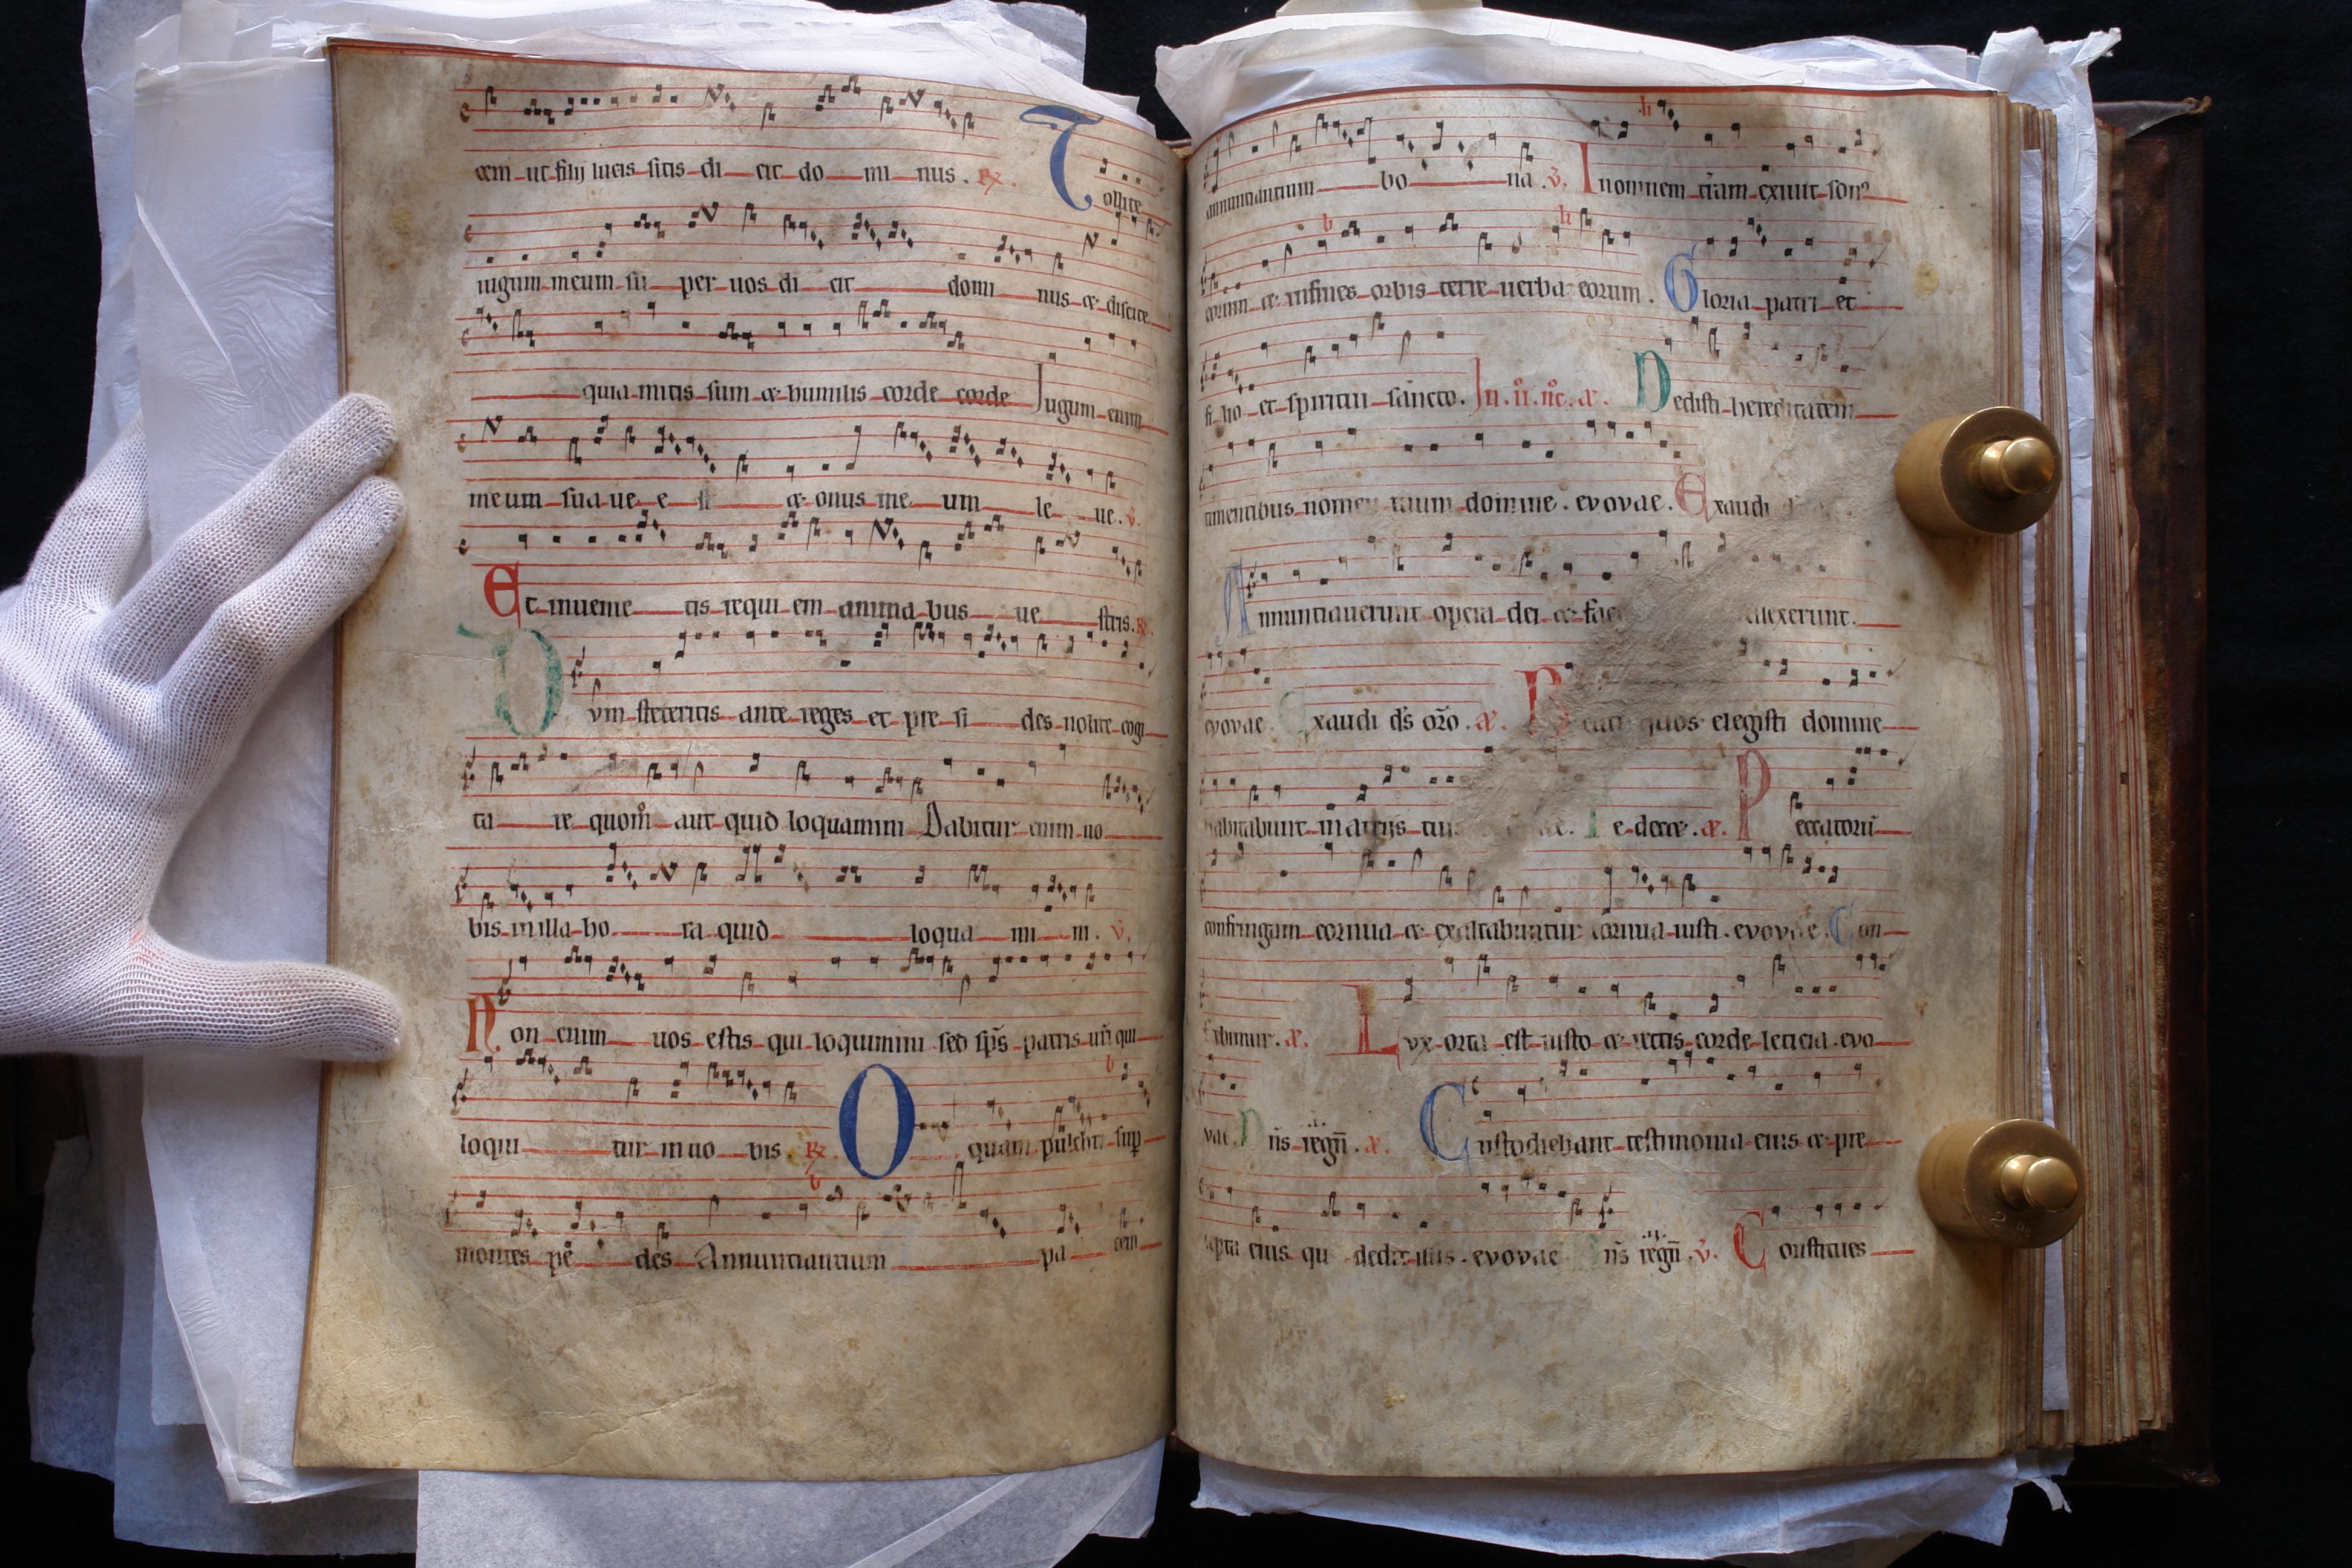 cem ut filij lucis sitis di cit do mi nus. R. Tollite
iugum meum su per uos di cit domi nus et discite
quia mitis sum et humilis corde corde Iugum enim
meum sua ue e st et onus me um le ue. v.
Et inuenie tis requi em anima bus ue stris. R.
Dvm steteritis ante reges et pre si des nolite cogi
ta re quom aut quid loquamini Dabitur enim uo
bis in illa ho ra quid loqua mi ni. v.
Non enim uos estis qui loquimini sed sps patris uri qui
loqui tur in uo bis R. O quam pulchri sup
montes pe des Annuntiantium pa cem
annuntiantium bo na. v. In omnem tram exiuit son
eorum et in fines orbis terre uerba eorum. Gloria patri et
fi lio et spiritui sancto. In .ii. nc. a. Dedisti hereditatem
timentibus nomen tuum domine. evovae. Exaudi
Annuntiauerunt opera dei et fac llexerunt.
evovae. Exaudi ds oro. a. quos elegisti domine
habitabunt in atrijs tuis Te decet. a. Peccatorum
confringam cornua et exaltabuntur cornua iusti. evovae. Con
fitebimur. a. Lvx orta est iusto et rectis corde leticia. evo
vae. Dns regn. a. Custodiebant testimonia eius et pre
cepta eius que dedit illis. evovae Dns regn. v. Constitues